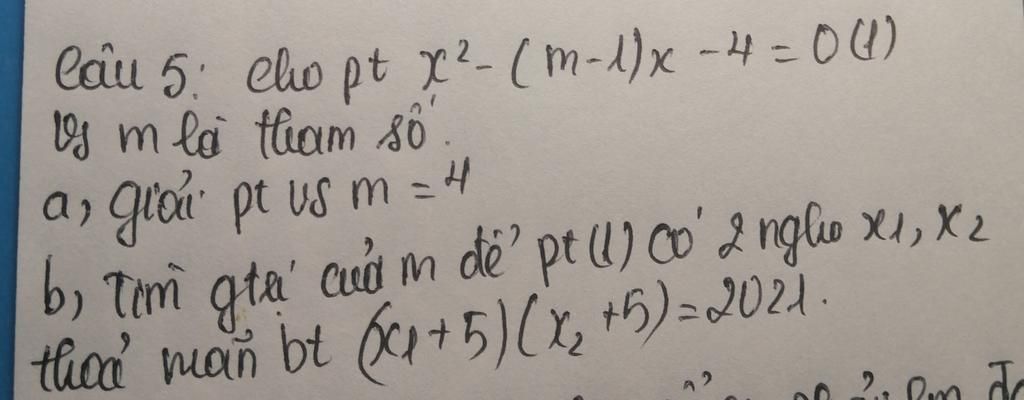 Câu 5: Cho pt x² - (m-1)x - 4 = 0 (1)
Vs m là tham số.
a, giải pt vs m = 4
b, Tìm gtrị của m để pt (1) có 2 ngho x1, x2
thoả mãn bt (x1+5)(x2+5)=2021.